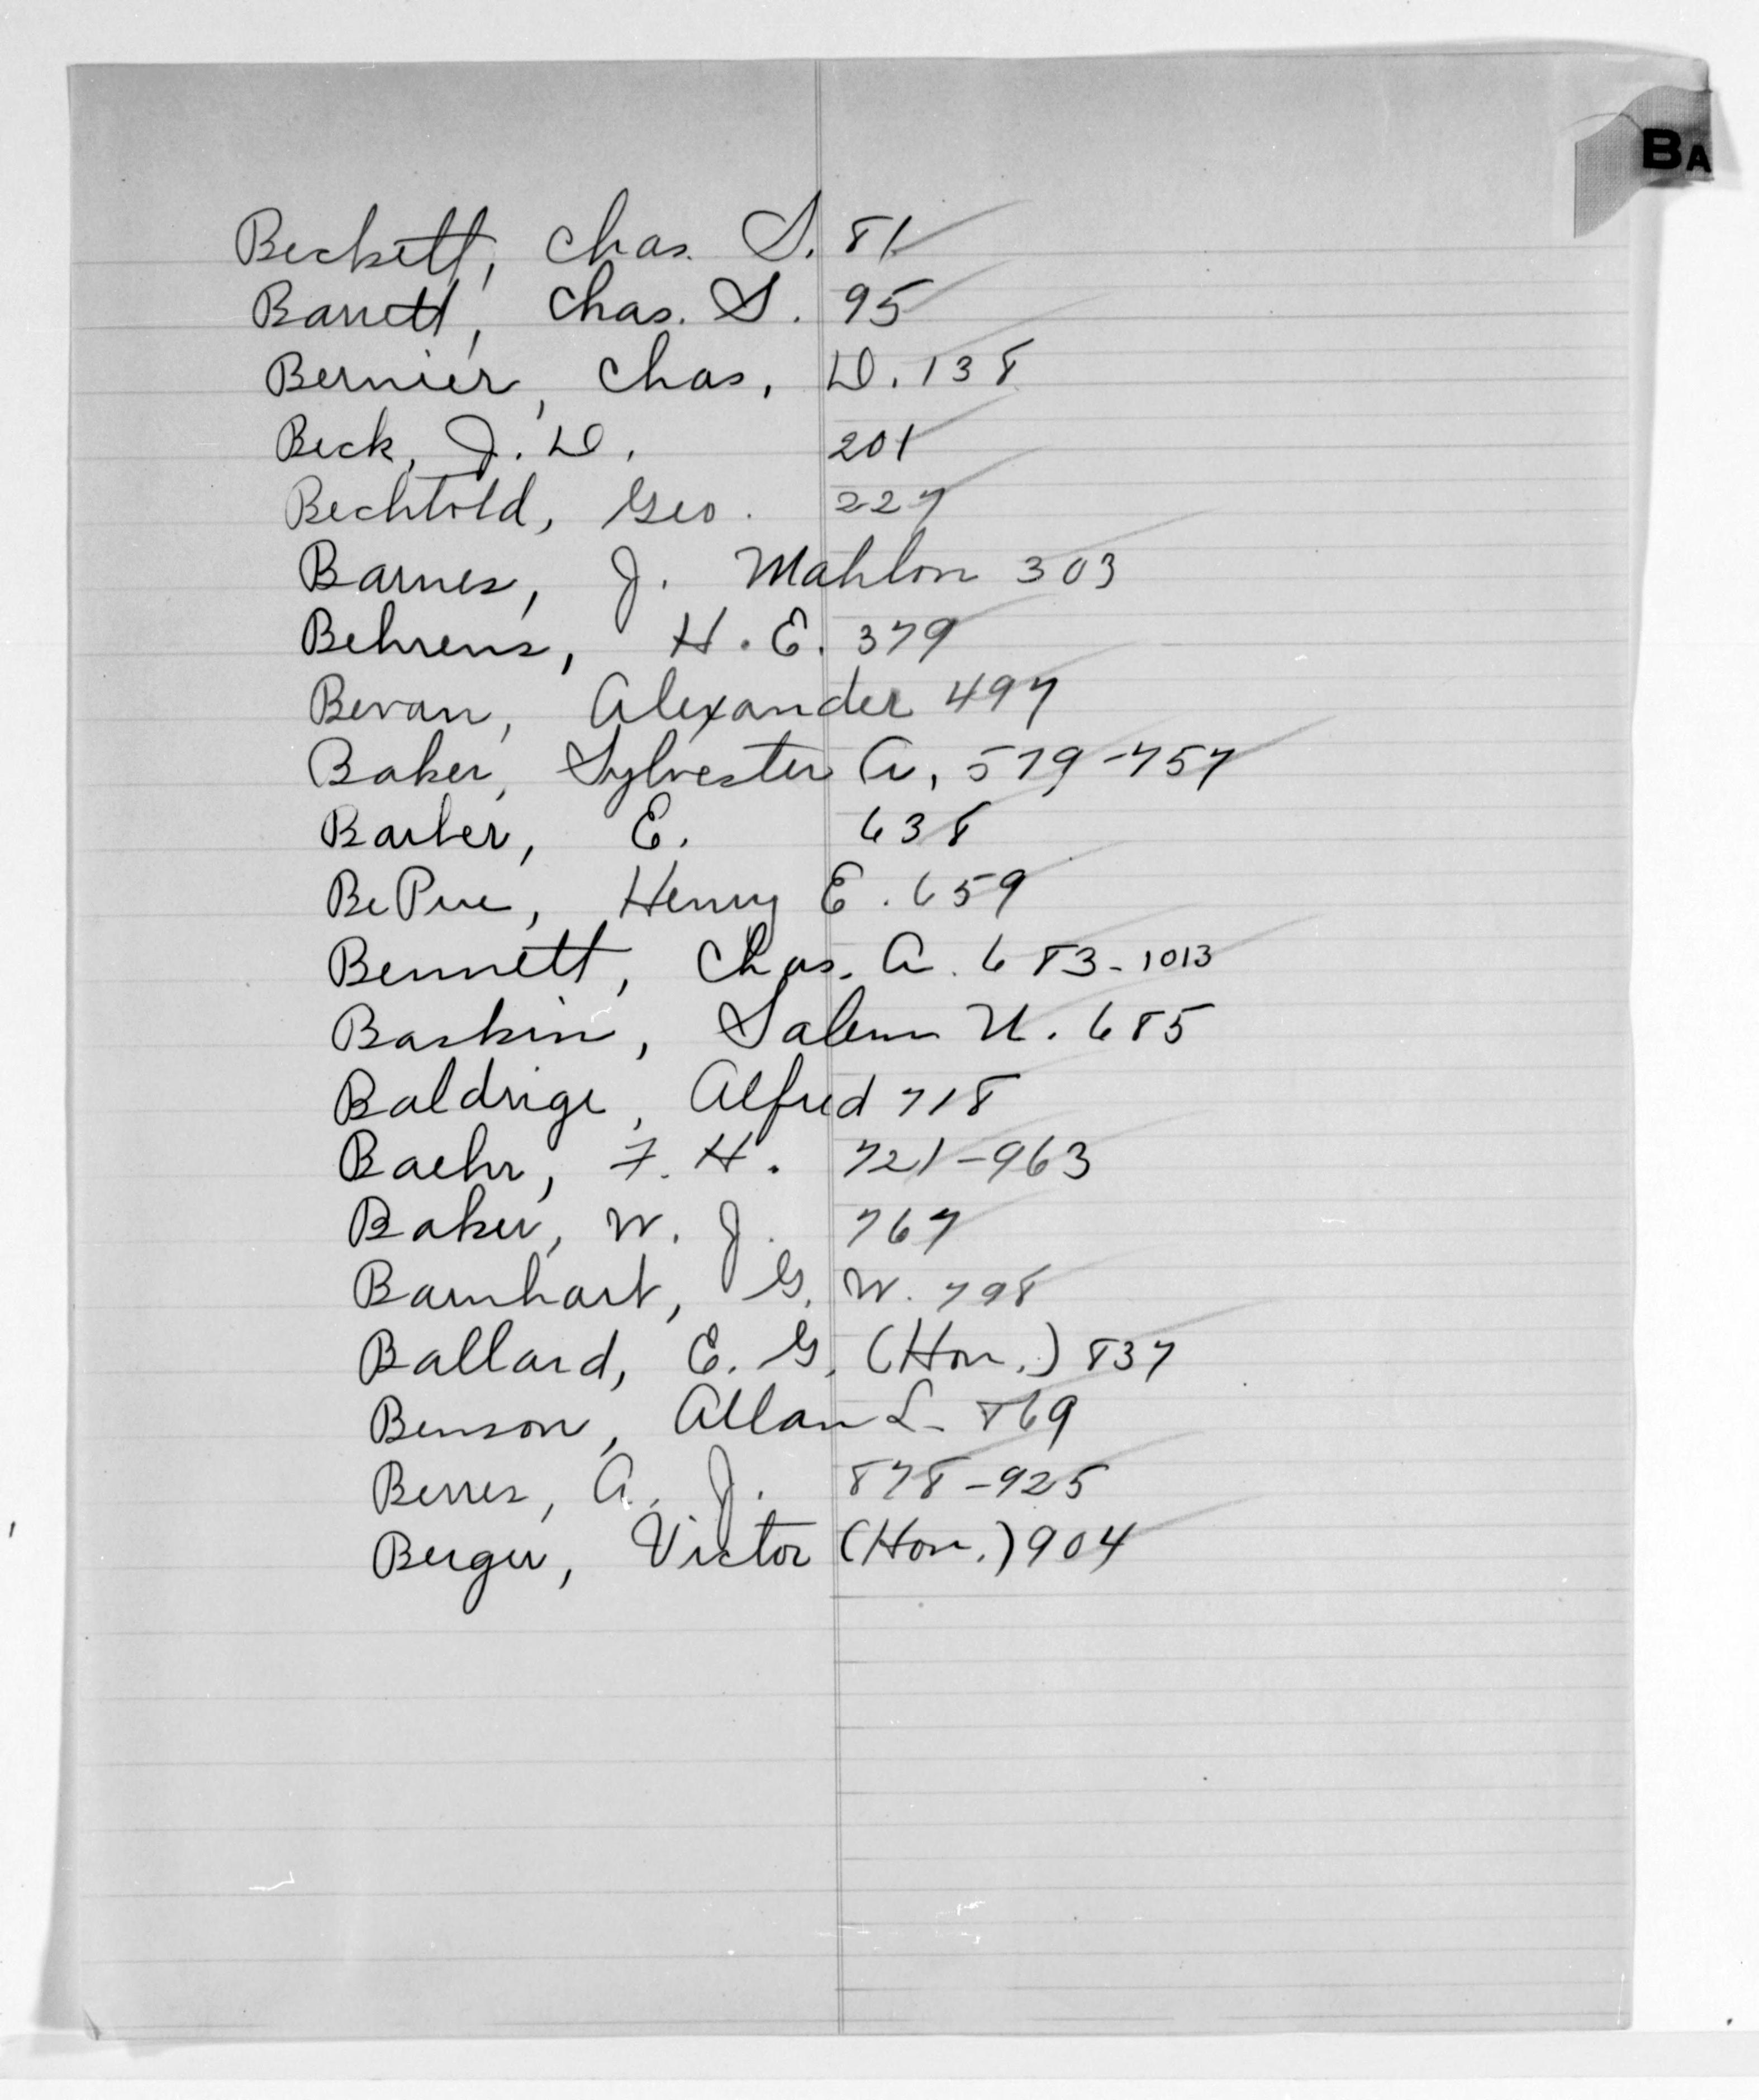 BA
Beckett, Chas. S. 81
Barrett, Chas. S. 95
Bernier, Chas, D. 138
Beck, J. D. 201
Bechtold, Geo. 227
Barnes, J. Mahlon 303
Behrens, H. E. 379
Bevan, Alexander 497
Baker, Sylvester A, 579-757
Barber, E. 638
BePue, Henry E. 659
Bennett, Chas. A. 683-1013
Baskin, Salem N. 685
Baldrige, Alfred 718
Baehr, F. H. 721-963
Baker, W. J. 767
Barnhart, G. W. 798
Ballard, E. G. (Hon.) 837
Benson, Allan L. 869
Berres, A. J. 878-925
Berger, Victor (Hon.) 904